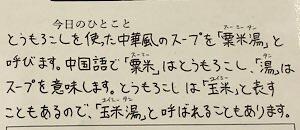 今日のひとこと
とうもろこしを使った中華風のスープを「粟米湯」と
呼びます。中国語で「粟米」はとうもろこし、「湯」は
スープを意味します。とうもろこしは「玉米」と表す
こともあるので、「玉米湯」と呼ばれることもあります。